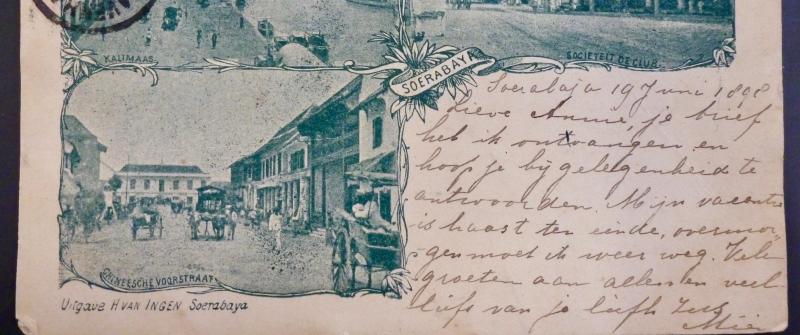 KALIMAAS
SOCIETEIT DE CLUB
SOERABAYA
Soerabaja 19 Juni 1898
Lieve Annie, je brief
heb ik ontvangen en
hoop je bij gelegenheid te
antwoorden. Mijn vacantie
is haast ten einde, overmor-
genmoet ik weer weg. Vele
groeten aan allen en veel
liefs van je liefh Zus
CHINEESCHE VOORSTRAAT
Uitgave H VAN INGEN Soerabaya